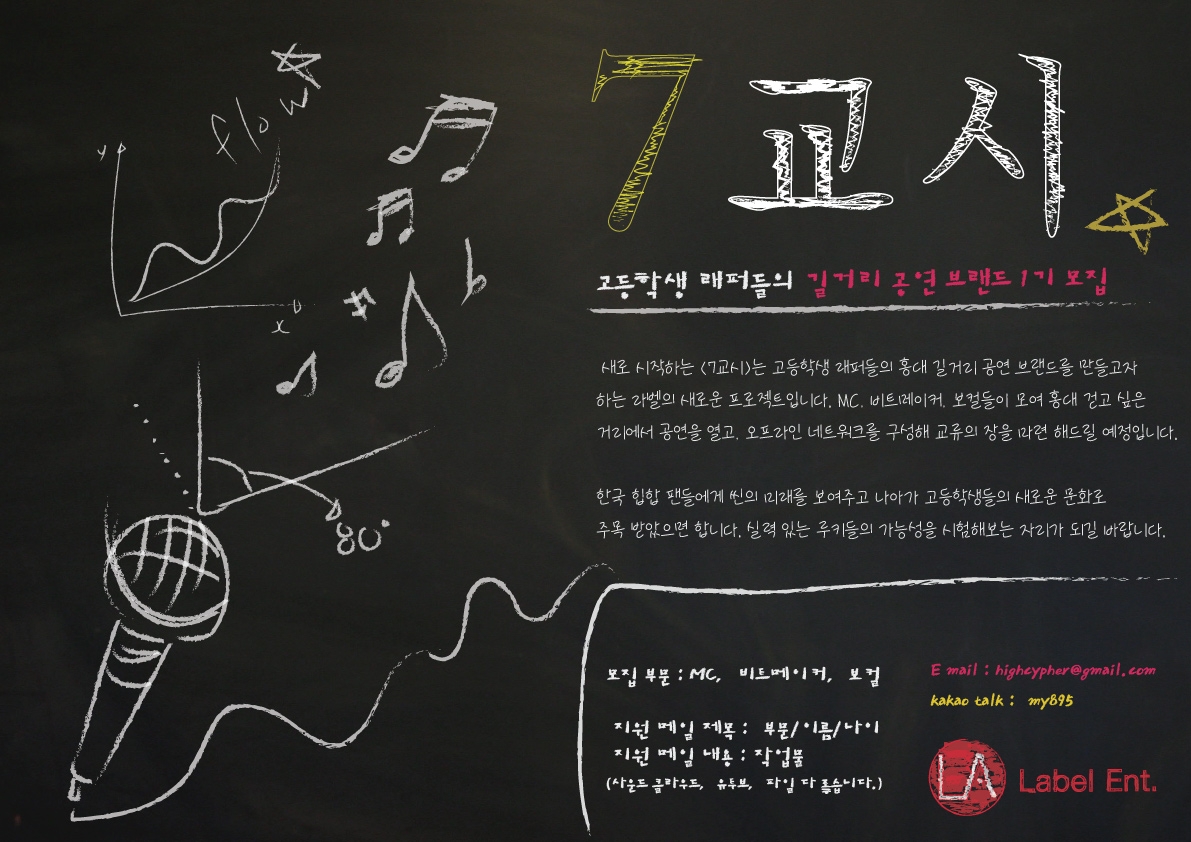 flow
y
x
80°
7교시
고등학생 래퍼들의 길거리 공연 브랜드 1기 모집
새로 시작하는 <7교시>는 고등학생 래퍼들의 홍대 길거리 공연 브랜드를 만들고자
하는 라벨의 새로운 프로젝트입니다. MC, 비트메이커, 보컬들이 모여 홍대 걷고 싶은
거리에서 공연을 열고, 오프라인 네트워크를 구성해 교류의 장을 마련 해드릴 예정입니다.
한국 힙합 팬들에게 씬의 미래를 보여주고 나아가 고등학생들의 새로운 문화로
주목 받았으면 합니다. 실력 있는 루키들의 가능성을 시험해보는 자리가 되길 바랍니다.
모집 부문 : MC, 비트메이커, 보컬
지원 메일 제목 : 부문/이름/나이
지원 메일 내용 : 작업물
(사운드 클라우드, 유투브, 파일 다 좋습니다.)
E mail : highcypher@gmail.com
kakao talk : my895
LA Label Ent.